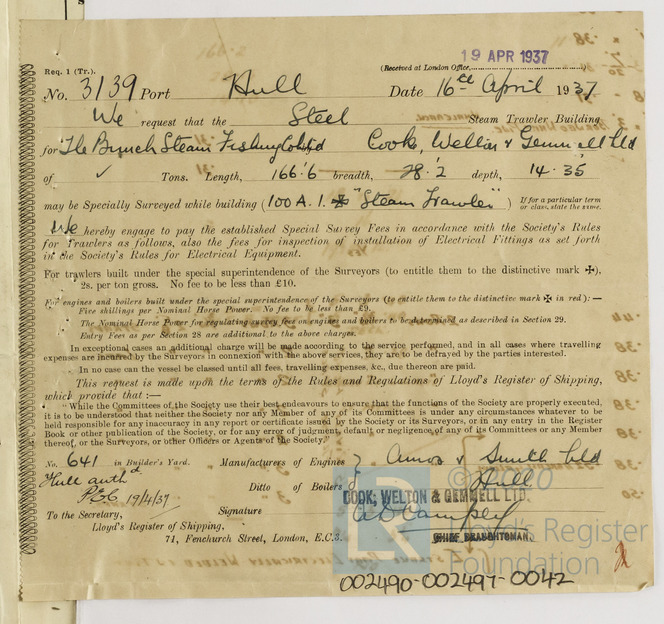 19 APR 1937
Req. 1 (Tr.). (Received at London Office,
No. 3139 Port Hull Date 16th April 1937
We request that the Steel Steam Trawler Building
for The Brunch Steam Fishing Co Ltd Cook, Welton & Gemmell Ltd
of ✓ Tons. Length, 166'.6 breadth, 28'.2 depth, 14.35
may be Specially Surveyed while building (100 A.1. ✠ "Steam Trawler") If for a particular term or class, state the same.
We hereby engage to pay the established Special Survey Fees in accordance with the Society's Rules
for Trawlers as follows, also the fees for inspection of installation of Electrical Fittings as set forth
in the Society's Rules for Electrical Equipment.
For trawlers built under the special superintendence of the Surveyors (to entitle them to the distinctive mark ✠),
2s. per ton gross. No fee to be less than £10.
For engines and boilers built under the special superintendence of the Surveyors (to entitle them to the distinctive mark ✠ in red):—
Five shillings per Nominal Horse Power. No fee to be less than £9.
The Nominal Horse Power for regulating survey fees on engines and boilers to be determined as described in Section 29.
Entry Fees as per Section 28 are additional to the above charges.
In exceptional cases an additional charge will be made according to the service performed, and in all cases where travelling
expenses are incurred by the Surveyors in connexion with the above services, they are to be defrayed by the parties interested.
In no case can the vessel be classed until all fees, travelling expenses, &c., due thereon are paid.
This request is made upon the terms of the Rules and Regulations of Lloyd's Register of Shipping,
which provide that :—
"While the Committees of the Society use their best endeavours to ensure that the functions of the Society are properly executed,
it is to be understood that neither the Society nor any Member of any of its Committees is under any circumstances whatever to be
held responsible for any inaccuracy in any report or certificate issued by the Society or its Surveyors, or in any entry in the Register
Book or other publication of the Society, or for any error of judgment, default or negligence of any of its Committees or any Member
thereof, or the Surveyors, or other Officers or Agents of the Society."
No. 641 in Builder's Yard. Manufacturers of Engines } Amos & Smith Ltd
Hull authd Ditto of Boilers } Hull
19/4/37
COOK, WELTON & GEMMELL LTD.
To the Secretary, Signature
Lloyd's Register of Shipping,
71, Fenchurch Street, London, E.C.3.
CHIEF DRAUGHTSMAN.
LR
Lloyd's Register
Foundation
002490-002497-0042